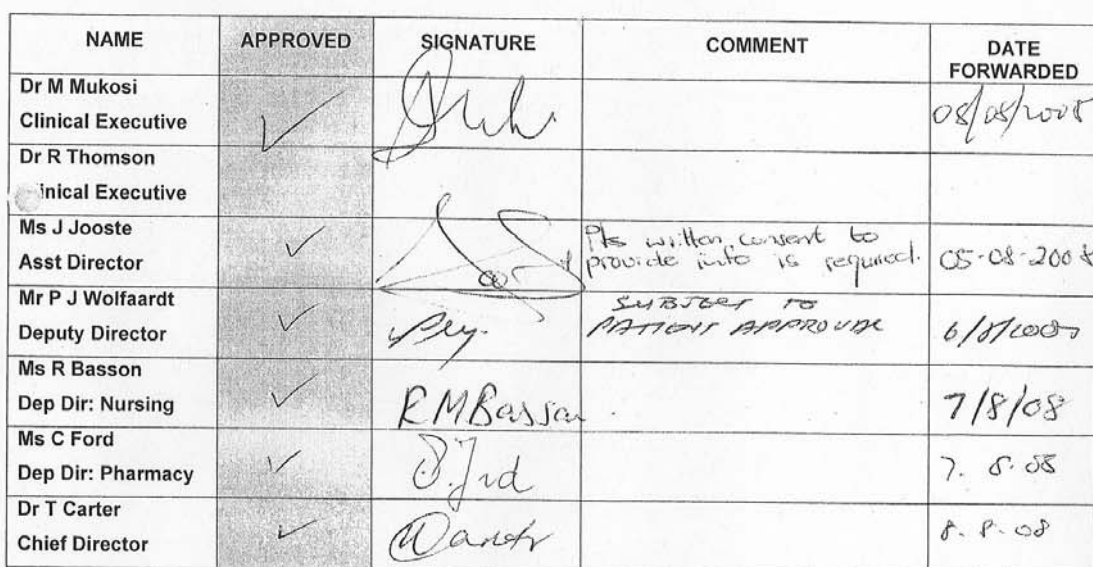 NAME APPROVED SIGNATURE COMMENT DATE
FORWARDED
Dr M Mukosi
Clinical Executive 08/08/2008
Dr R Thomson
inical Executive
Ms J Jooste Pts written consent to
Asst Director provide info is required. 05-08-2008
Mr P J Wolfaardt SUBJECT TO
Deputy Director PATIENT APPROVAL 6/8/2008
Ms R Basson
Dep Dir: Nursing RMBasson 7/8/08
Ms C Ford
Dep Dir: Pharmacy 7. 8. 08
Dr T Carter
Chief Director 8. 8. 08